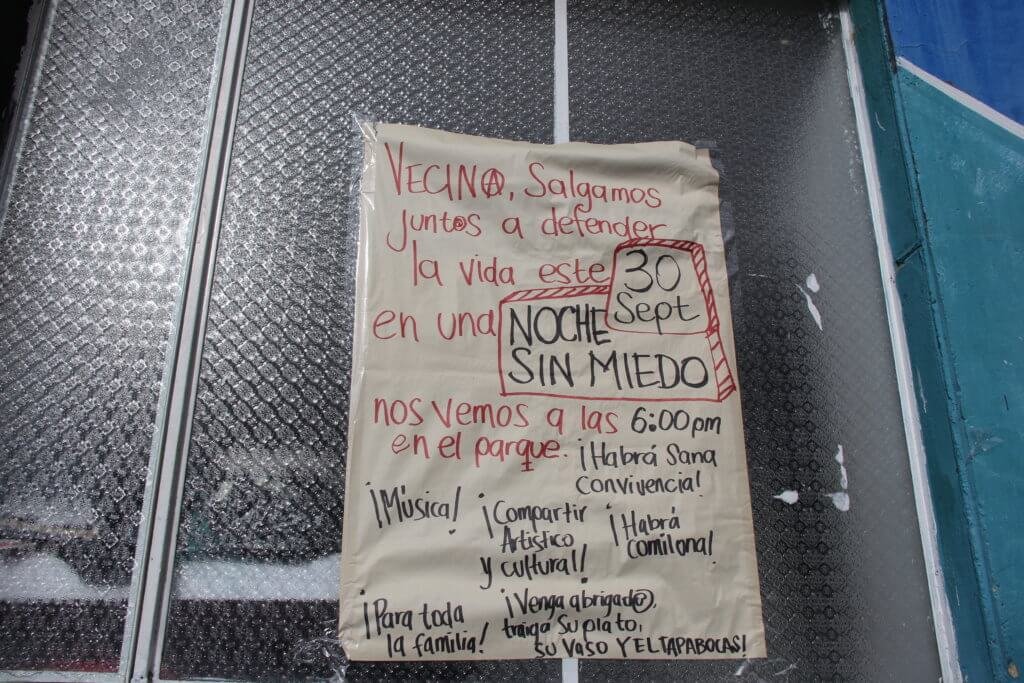 VECIN@, Salgamos
junt@s a defender
la vida este 30 Sept
en una NOCHE
SIN MIEDO
nos vemos a las 6:00pm
en el parque.
¡Habrá Sana
Convivencia!
¡Música!
¡Compartir
Artistico
y cultural!
¡Habrá
comilona!
¡Para toda
la familia!
¡Venga abrigad@,
traiga su plato,
su vaso Y EL TAPABOCAS!